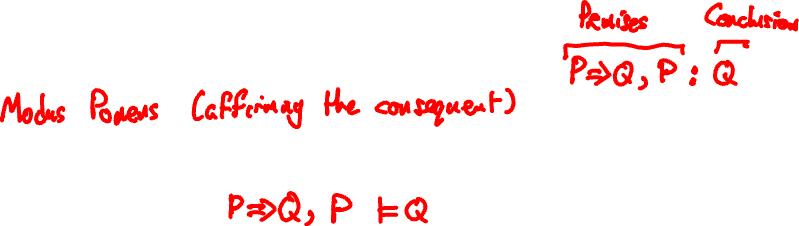 Premises Conclusion
P⇒Q, P : Q
Modus Ponens (affirming the consequent)
P⇒Q, P ⊨ Q